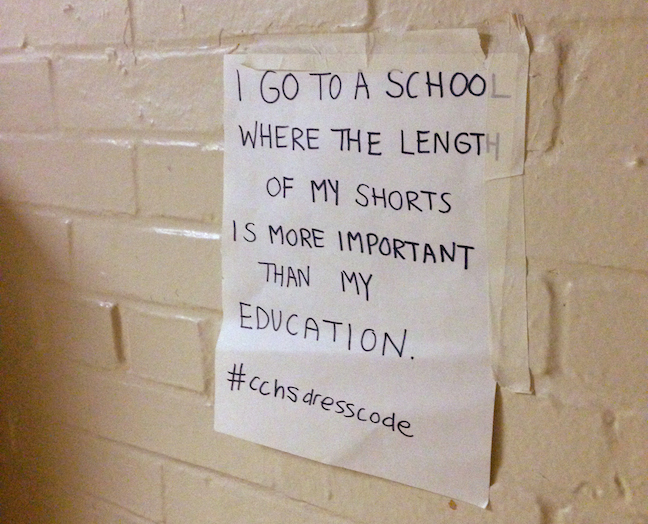 I GO TO A SCHOOL
WHERE THE LENGTH
OF MY SHORTS
IS MORE IMPORTANT
THAN MY
EDUCATION.
#cchsdresscode